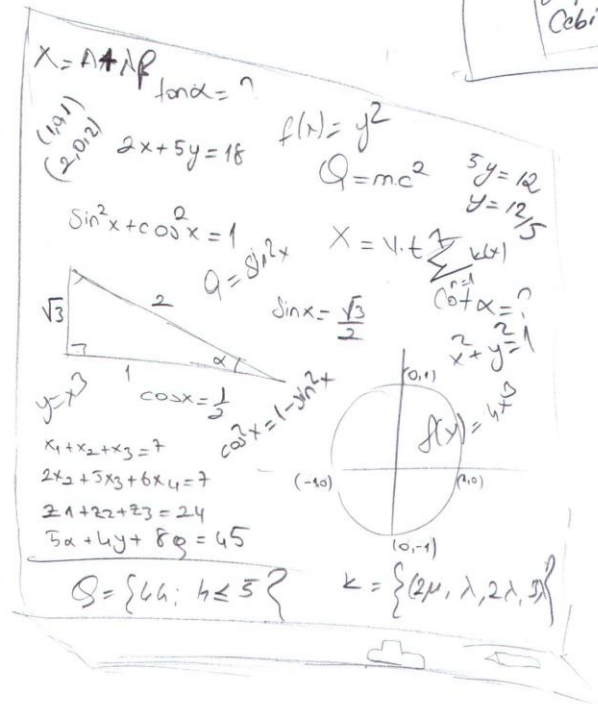 Cebi
X = A + λβ
tanα = ?
(1,9,1)
(2,0,2)
2x + 5y = 18
f(x) = y²
Q = mc²
5y = 12
y = 12/5
sin²x + cos²x = 1
Q = sin²x
X = v.t
∑ k(x)
n=1
sinx = √3/2
cotα = ?
x² + y² = 1
√3
2
1
α
y = x³
cosx = 1/2
cos²x = 1 - sin²x
f(x) = 4x³
(0,1)
(-1,0)
(1,0)
(0,-1)
x₁ + x₂ + x₃ = 7
2x₂ + 5x₃ + 6x₄ = 7
z1 + z2 + z3 = 24
5α + 4y + 8g = 45
k = {(2μ, λ, 2λ, 3λ)}